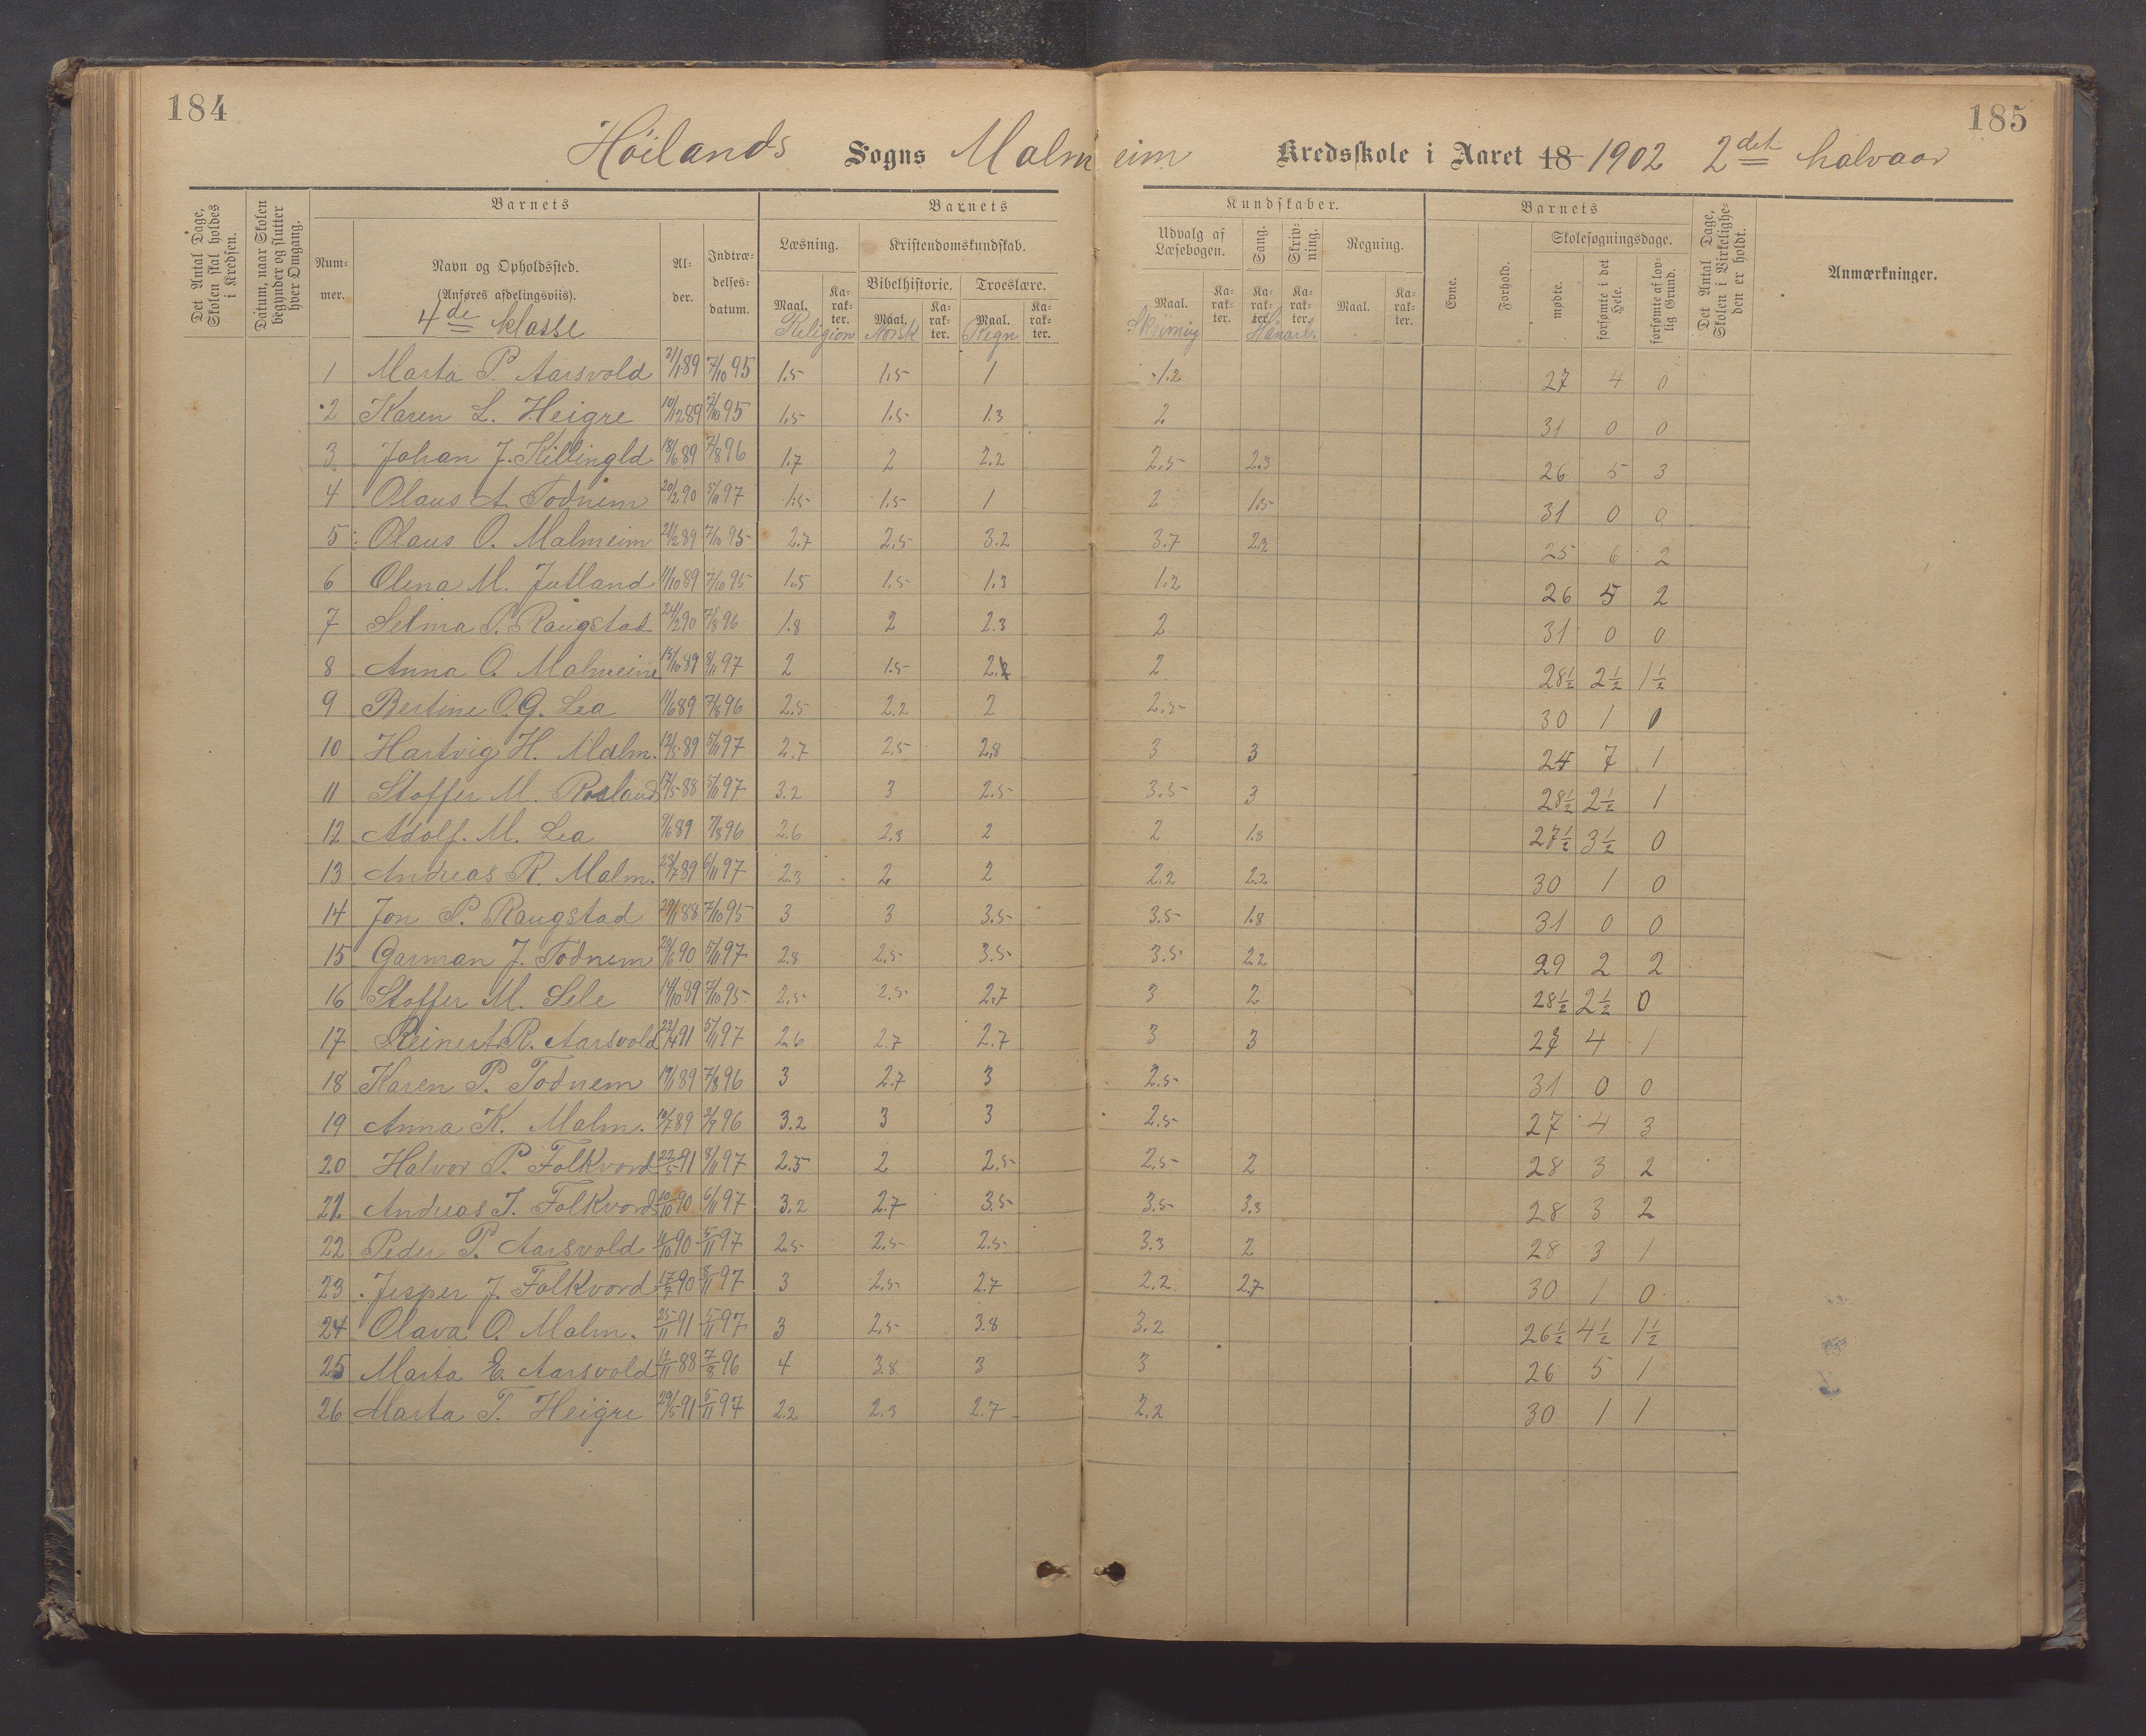 184
185
Höilands Sogns Malmeim Kredsskole i Aaret 18 1902 2det halvaar
Det Antal Dage, Skolen skal holdes i Kredsen.
Datum, naar Skolen begynder og slutter hver Omgang.
Barnets
Barnets
Kundskaber.
Barnets
Nummer.
Navn og Opholdssted.
(Anføres afdelingsviis).
4de klasse
Alder.
Indtrædelsesdatum.
Læsning.
Kristendomskundskab.
Bibelhistorie.
Troeslære.
Maal. Karakter. Maal. Karakter. Maal. Karakter.
Religion Norsk Regn
Udvalg af Læsebogen.
Sang.
Skrivning.
Regning.
Maal. Karakter. Karakter. Karakter. Maal. Karakter.
Skrivning Haanarb.
Evne.
Forhold.
Skolesøgningsdage.
mødte.
forsømte i det Hele.
forsømte af lovlig Grund.
Det Antal Dage, Skolen i Virkeligheden er holdt.
Anmærkninger.
1 Marta P. Aarsvold 31/1 89 7/10 95 1.5 1.5 1 1.2 27 4 0
2 Karen L. Heigre 10/12 89 7/10 95 1.5 1.5 1.3 2 31 0 0
3 Johan J. Killingld 18/6 89 7/8 96 1.7 2 2.2 2.5 2.3 26 5 3
4 Olaus A. Todnem 20/2 90 5/11 97 1.5 1.5 1 2 1.5 31 0 0
5 Olaus O. Malmeim 21/2 89 7/10 95 2.7 2.5 3.2 3.7 2.2 25 6 2
6 Olena M. Jutland 11/10 89 7/10 95 1.5 1.5 1.3 1.2 26 5 2
7 Selma P. Raugstad 24/2 90 7/8 96 1.8 2 2.3 2 31 0 0
8 Anna O. Malmeim 15/10 89 8/11 97 2 1.5 2.2 2 28½ 2½ 1½
9 Bertine O.G. Lea 11/6 89 7/8 96 2.5 2.2 2 2.5 30 1 0
10 Hartvig H. Malm. 12/5 89 5/11 97 2.7 2.5 2.8 3 3 24 7 1
11 Stoffer M. Rosland 17/5 88 5/11 97 3.2 3 2.5 3.5 3 28½ 2½ 1
12 Adolf. M. Lea 9/6 89 7/8 96 2.6 2.3 2 2 1.8 27½ 3½ 0
13 Andreas R. Malm. 23/7 89 6/11 97 2.3 2 2 2.2 2.2 30 1 0
14 Jon P. Raugstad 29/1 88 7/10 95 3 3 3.5 3.5 1.8 31 0 0
15 Garman J. Todnem 28/6 90 5/11 97 2.8 2.5 3.5 3.5 2.2 29 2 2
16 Stoffer M. Sele 14/10 89 7/10 95 2.5 2.5 2.7 3 2 28½ 2½ 0
17 Reinert R. Aarsvold 22/4 91 5/11 97 2.6 2.7 2.7 3 3 27 4 1
18 Karen P. Todnem 19/1 89 7/8 96 3 2.7 3 2.5 31 0 0
19 Anna K. Malm. 10/7 89 2/9 96 3.2 3 3 2.5 27 4 3
20 Halvor P. Folkvord 22/5 91 8/11 97 2.5 2 2.5 2.5 2 28 3 2
21 Andreas T. Folkvord 10/10 90 6/11 97 3.2 2.7 3.5 3.5 3.3 28 3 2
22 Peder P. Aarsvold 11/10 90 5/11 97 2.5 2.5 2.5 3.3 2 28 3 1
23 Jesper J. Folkvord 17/7 90 8/11 97 3 2.5 2.7 2.2 2.7 30 1 0
24 Olava O. Malm. 25/11 91 5/11 97 3 2.5 3.8 3.2 26½ 4½ 1½
25 Marta E. Aarsvold 12/11 88 7/8 96 4 3.8 3 3 26 5 1
26 Marta T. Heigre 29/5 91 5/11 97 2.2 2.3 2.7 2.2 30 1 1